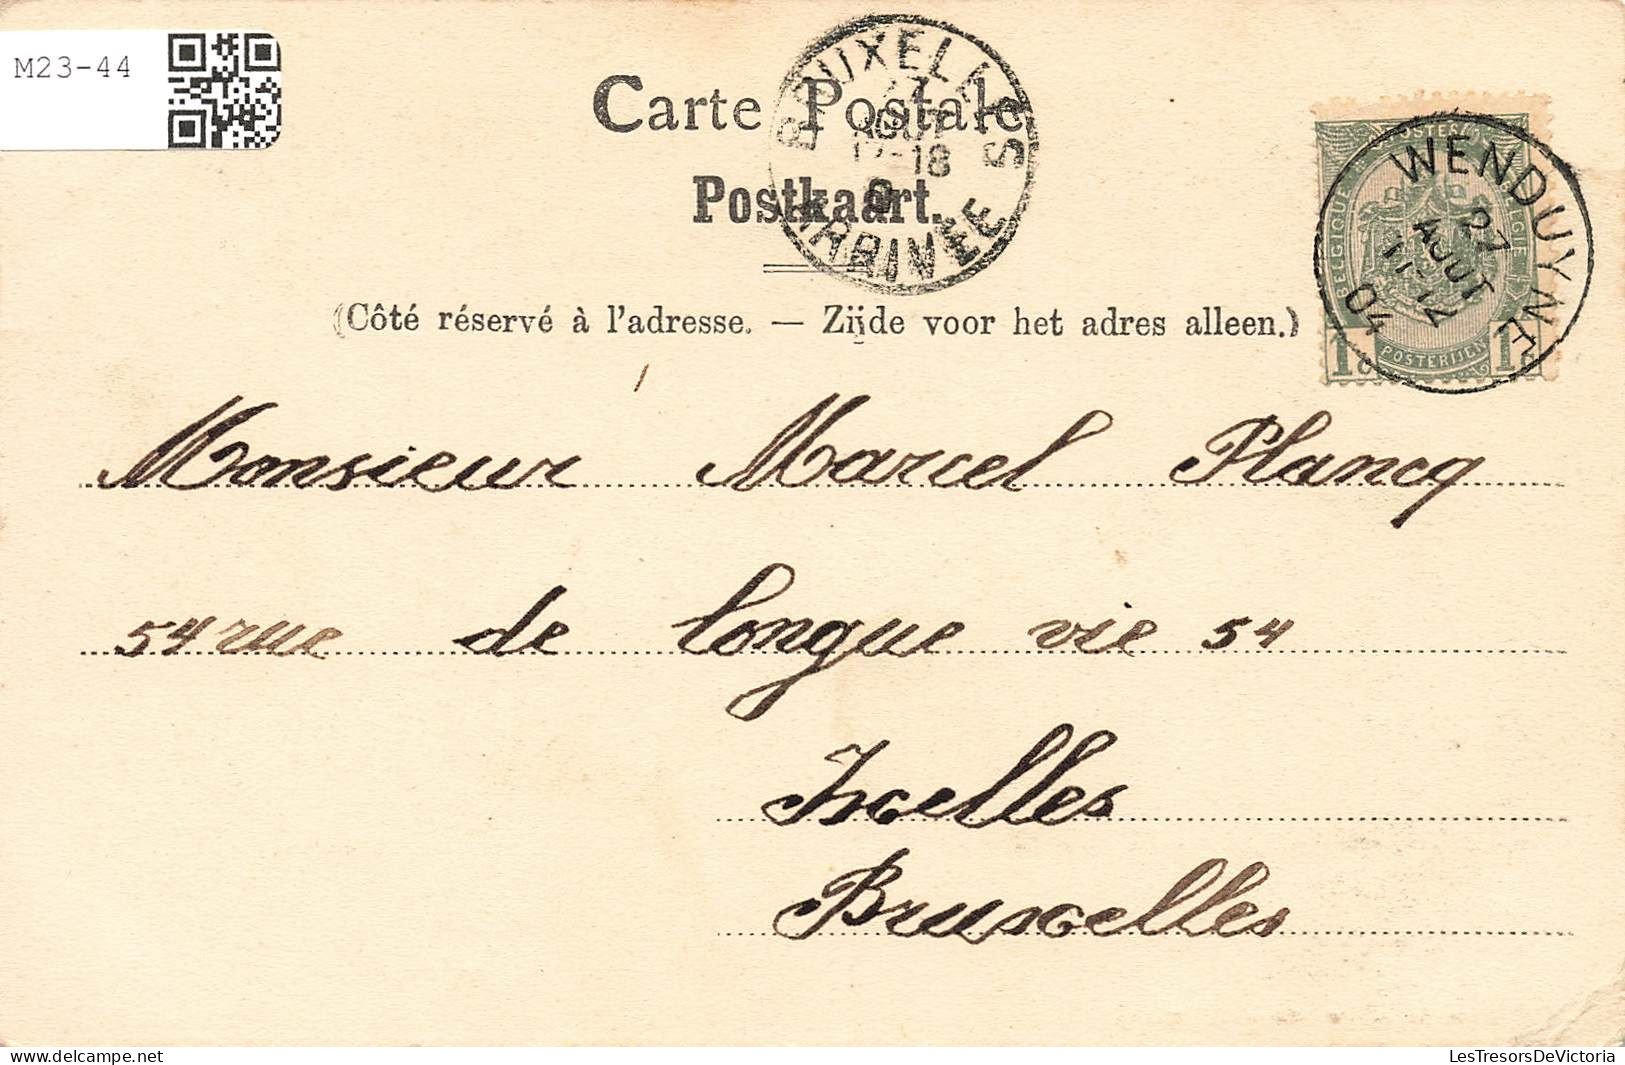 M23-44
Carte Postale
Postkaart.
BRUXELLES
AOUT
ARRIVÉE
WENDUYNE
27
AOUT
11-12
04
BELGIQUE
BELGIE
POSTERIJEN
1c 1c
(Côté réservé à l'adresse. — Zijde voor het adres alleen.)
Monsieur Marcel Plancq
54 rue de longue vie 54
Ixelles
Bruxelles
delcampe.net
LesTresorsDeVictoria